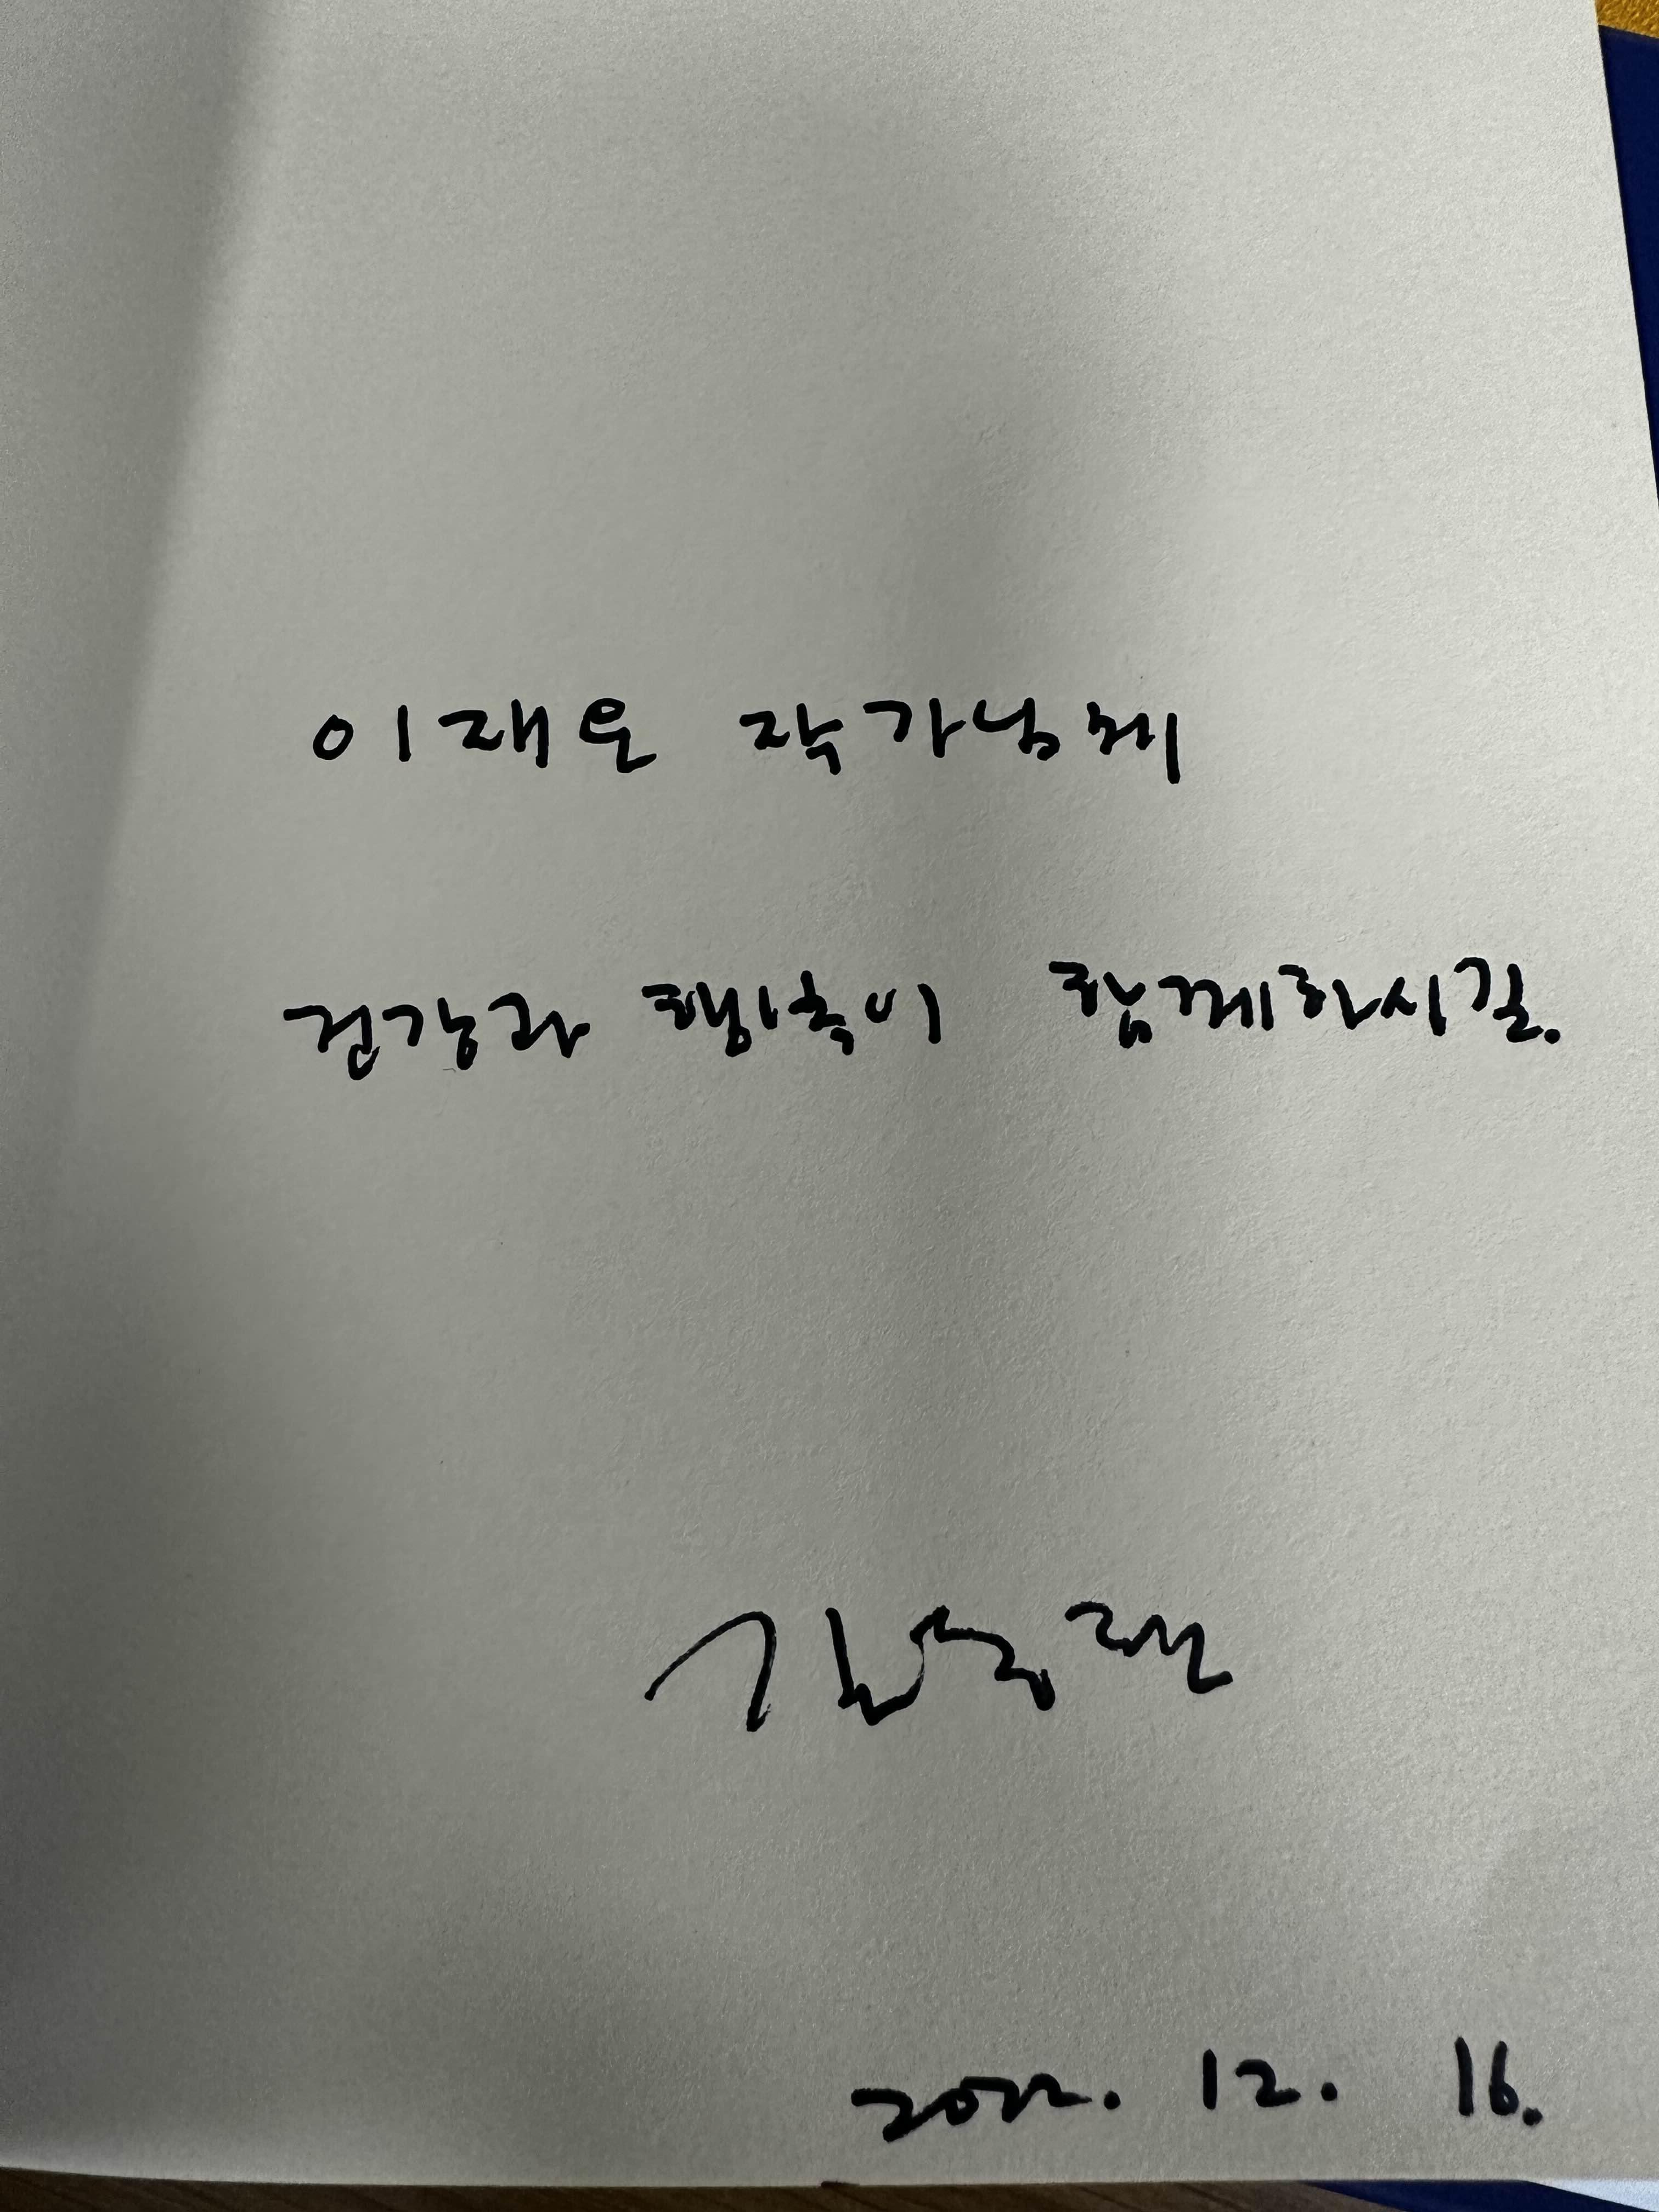 이재운 작가님께
건강과 행복이 함께하시길.
2022. 12. 16.